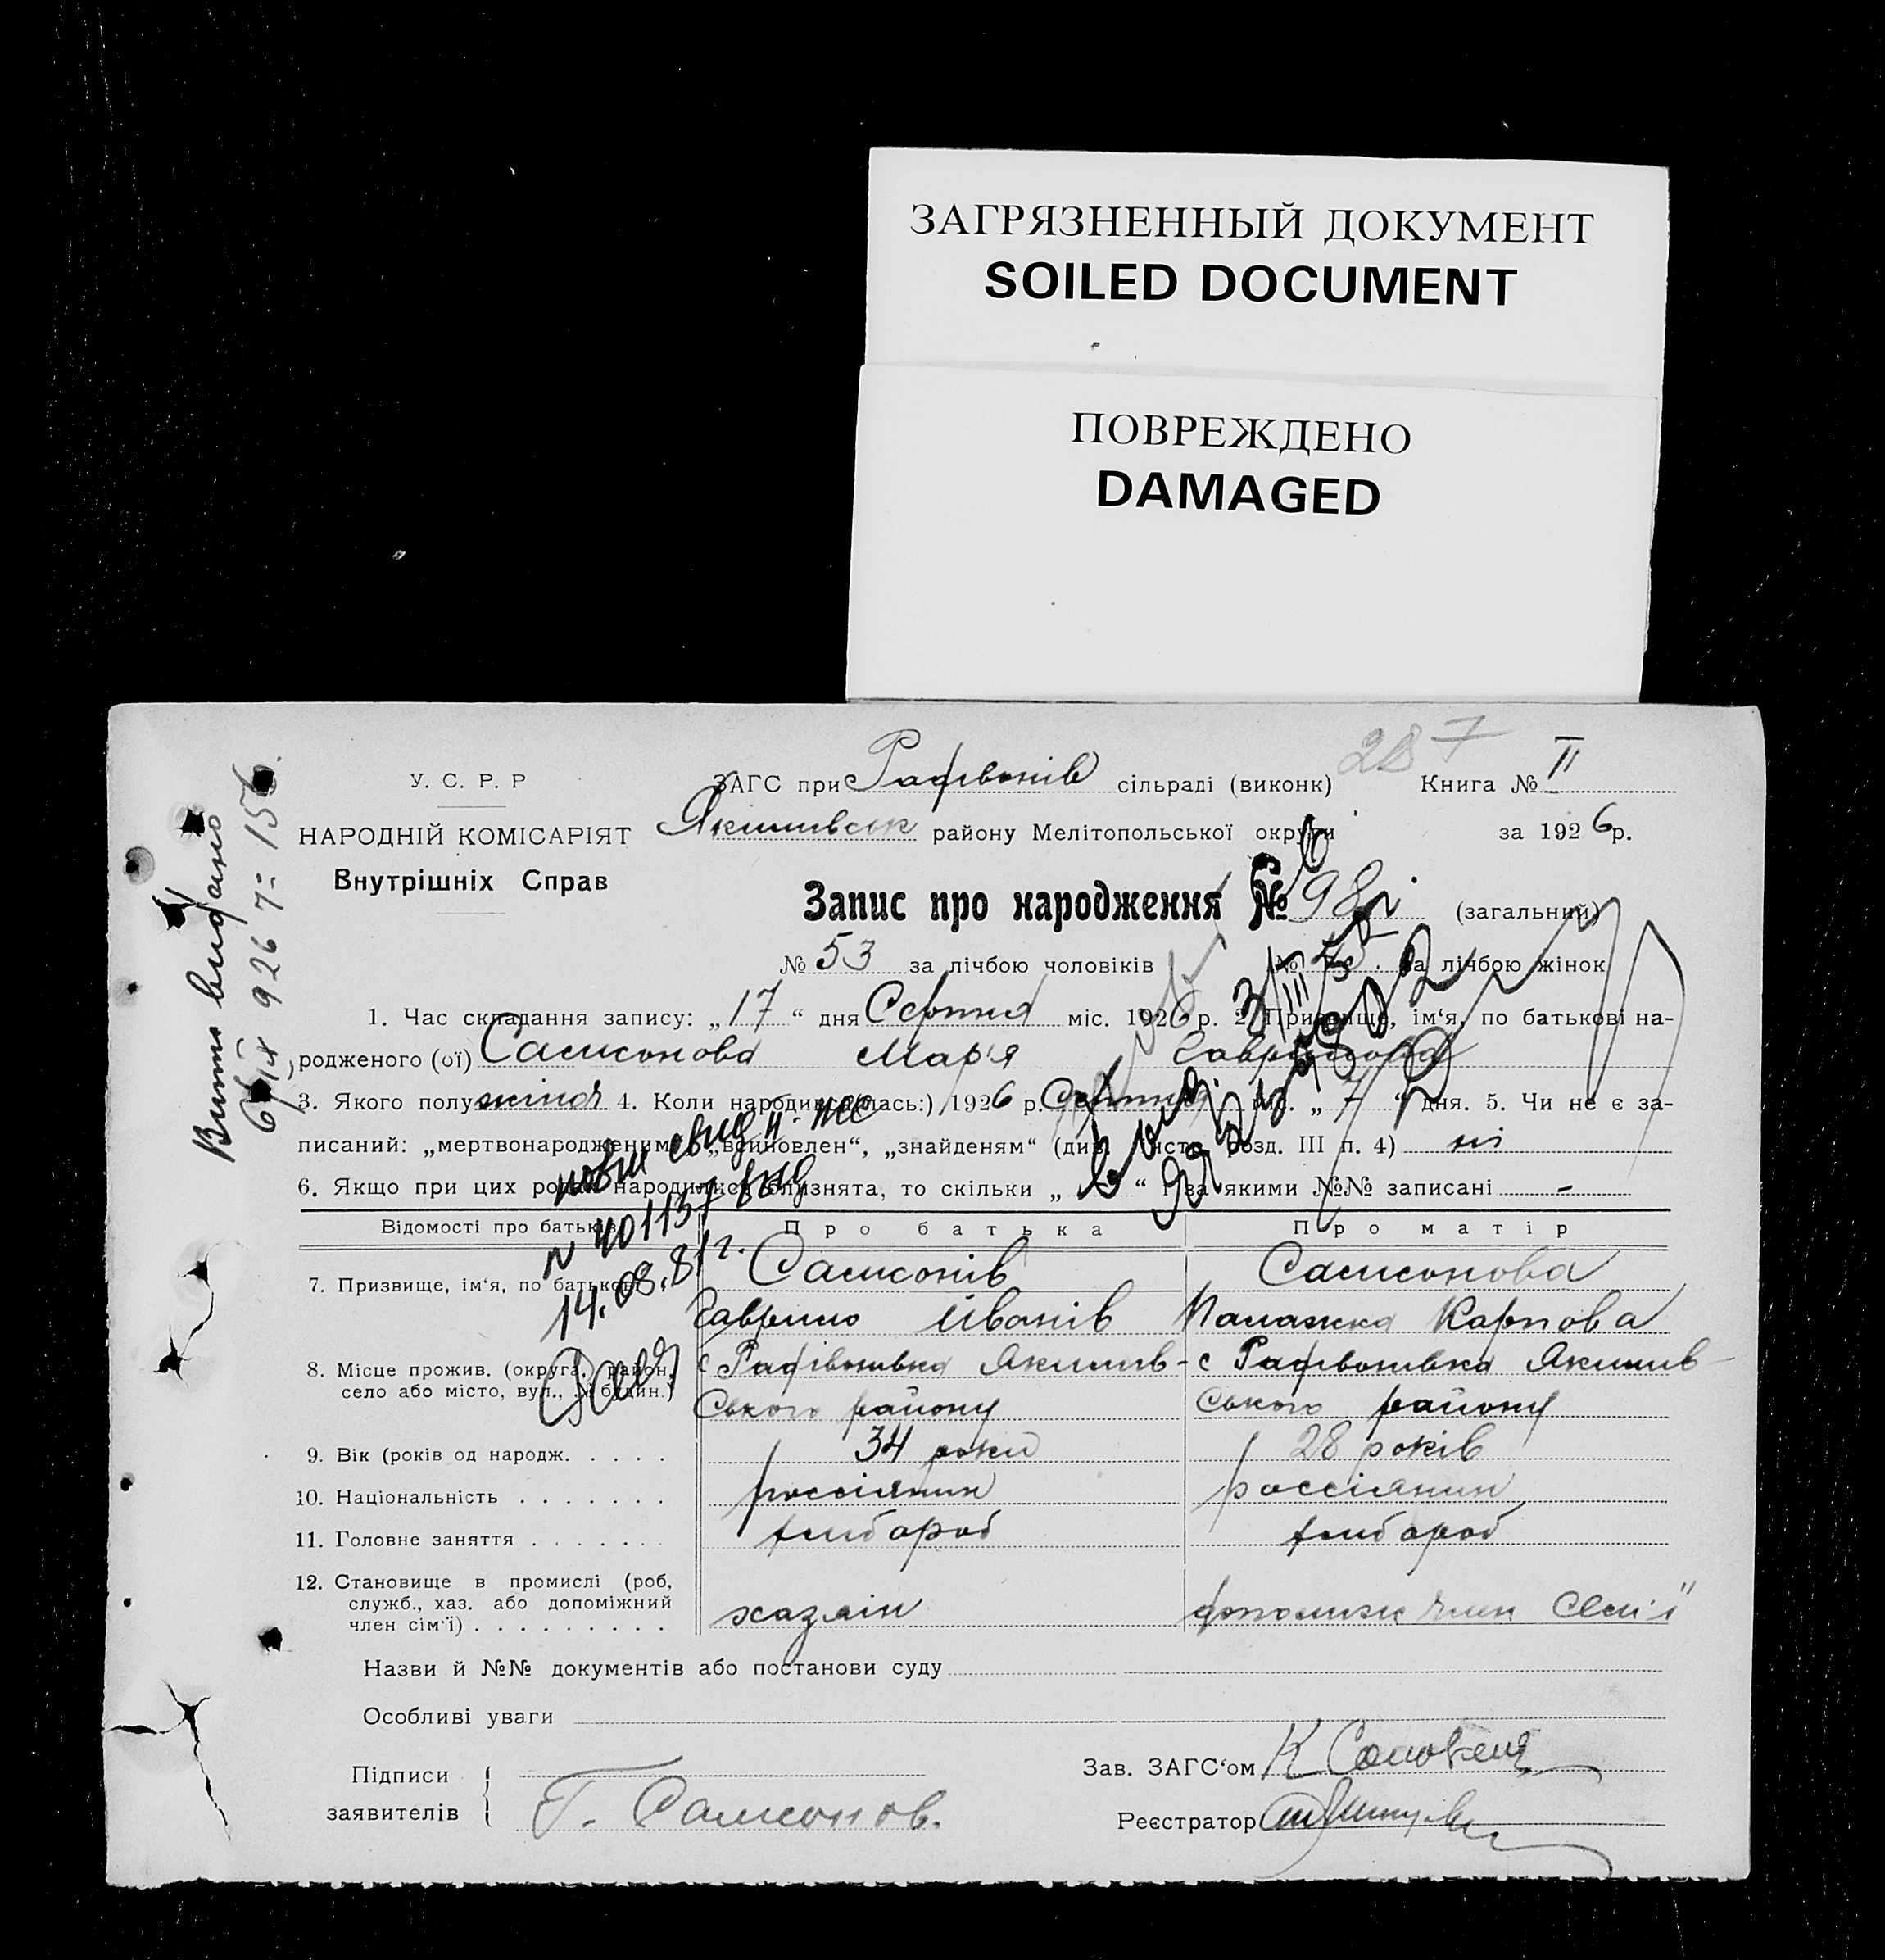 ЗАГРЯЗНЕННЫЙ ДОКУМЕНТ
SOILED DOCUMENT
ПОВРЕЖДЕНО
DAMAGED
287
У. С. Р. Р
ЗАГС при сільраді (виконк) Книга № II
НАРОДНІЙ КОМІСАРІЯТ
Якимівськ району Мелітопольської округи за 1926 р.
Внутрішніх Справ
Запис про народження № 98 (загальний)
№ 53 за лічбою чоловіків № 45 за лічбою жінок
1. Час складання запису: „17“ дня Серпня міс. 1926 р. 2. Призвище, ім‘я, по батькові на-
родженого (ої) Самсонова Мар'я
3. Якого полу жіноч 4. Коли народився(лась:) 1926 р. Серпня міс. „7“ дня. 5. Чи не є за-
писаний: „мертвонародженим“, „вдиновлен“, „знайденям“ (див. розд. III п. 4) ні
6. Якщо при цих родах народились близнята, то скільки „ “ і за якими №№ записані -
Відомості про батьків Про батька Про матір
7. Призвище, ім‘я, по батькові Самсонів Самсонова
Гаврило Иванів Палажка Карпова
8. Місце прожив. (округа, район, село або місто, вул., будин.) с Радівонівка Якимів- с Радівонівка Якимів-
ського району ського району
9. Вік (років од народж. . . . . 34 роки 28 років
10. Національність . . . . . . . россіянин россіянин
11. Головне заняття . . . . . . . хлібороб хлібороб
12. Становище в промислі (роб, служб., хаз. або допоміжний член сім‘ї) . . . . . . . . . хазяїн член сем'ї
Назви й №№ документів або постанови суду
Особливі уваги
Підписи заявителів Г. Самсонов.
Зав. ЗАГС‘ом К
Реєстратор
Витяг видано
926 7- 156.
нові свид
N 401137 вид
14.08.81г.